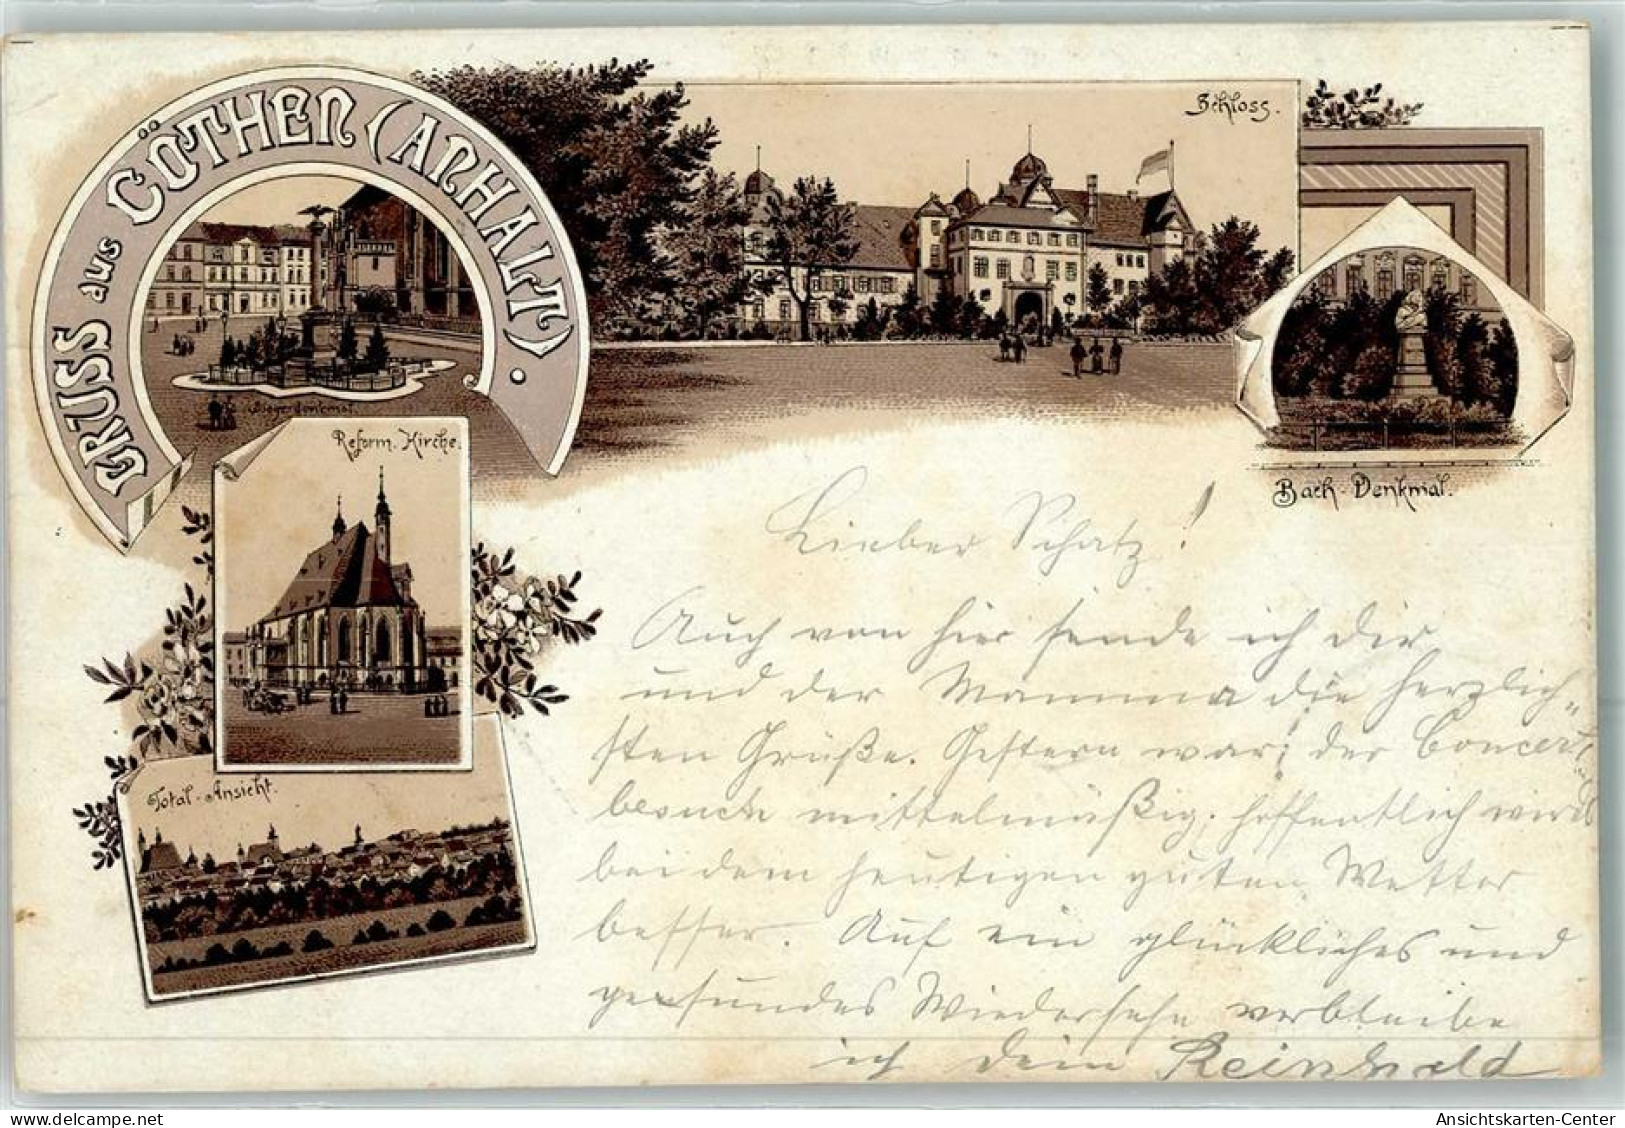 GRUSS aus CÖTHEN (ANHALT).
Siegerdenkmal.
Schloss.
Bach-Denkmal.
Reform. Kirche.
Total-Ansicht.
Lieber Schatz!
Auch von hier sende ich Dir
und der Mamma die herzlich-
sten Grüße. Gestern war der Concert
besuch mittelmäßig, hoffentlich wird es
bei dem heutigen guten Wetter
besser. Auf ein glückliches und
gesundes Wiedersehn verbleibe
ich dein Reinhold
Ansichtskarten-Center